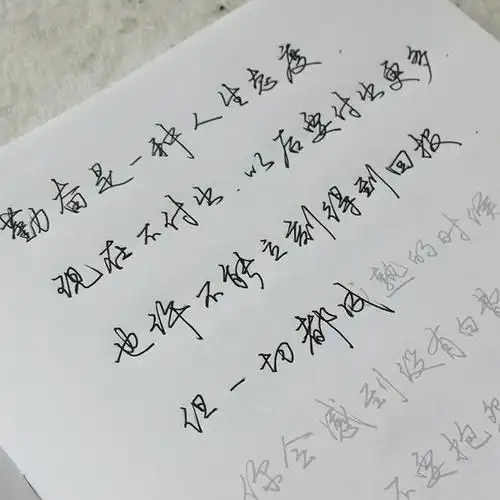 勤奋是一种人生态度.
现在不付出.以后要付出更多.
也许不能立刻得到回报.
但一切都成熟的时候
你会感到没有白费
不要抱怨